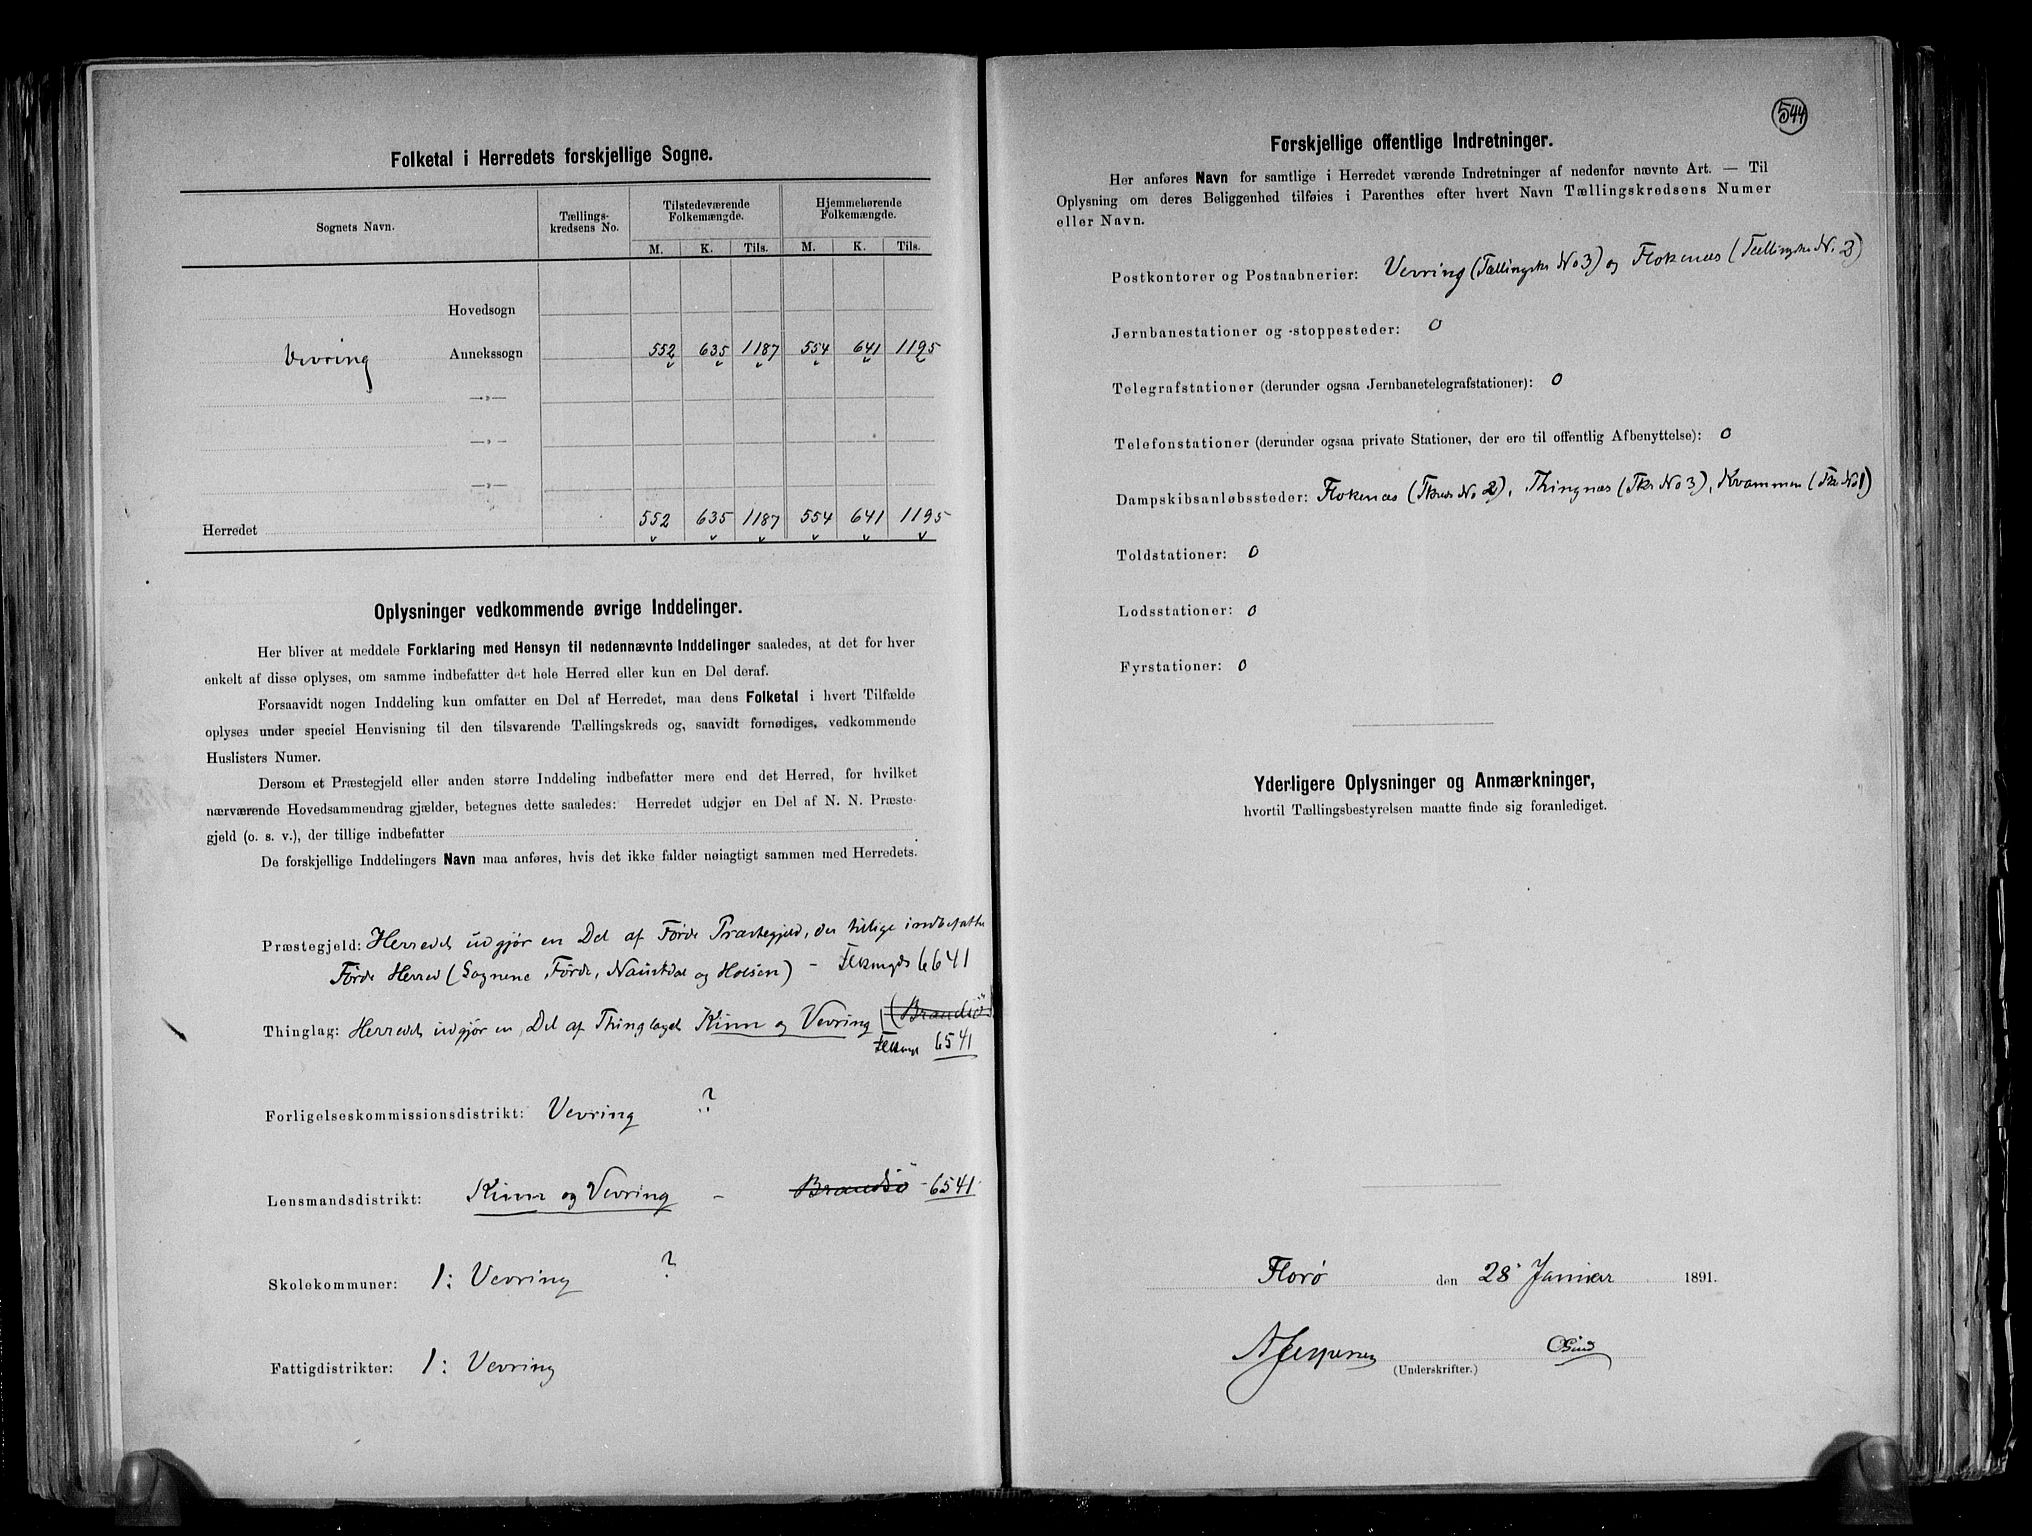 Folketal i Herredets forskjellige Sogne.
Sognets Navn. Tællings-kredsens No. Tilstedeværende Folkemængde. Hjemmehørende Folkemængde.
M. K. Tils. M. K. Tils.
Hovedsogn
Vevring Annekssogn 552 635 1187 554 641 1195
—»—
—»—
—»—
Herredet 552 635 1187 554 641 1195
Oplysninger vedkommende øvrige Inddelinger.
Her bliver at meddele Forklaring med Hensyn til nedennævnte Inddelinger saaledes, at det for hver
enkelt af disse oplyses, om samme indbefatter det hele Herred eller kun en Del deraf.
Forsaavidt nogen Inddeling kun omfatter en Del af Herredet, maa dens Folketal i hvert Tilfælde
oplyses under speciel Henvisning til den tilsvarende Tællingskreds og, saavidt fornødiges, vedkommende
Huslisters Numer.
Dersom et Præstegjeld eller anden større Inddeling indbefatter mere end det Herred, for hvilket
nærværende Hovedsammendrag gjælder, betegnes dette saaledes: Herredet udgjør en Del af N. N. Præste-
gjeld (o. s. v.), der tillige indbefatter
De forskjellige Inddelingers Navn maa anføres, hvis det ikke falder nøiagtigt sammen med Herredets.
Præstegjeld: Herredet udgjør en Del af Førde Præstegjeld, der tillige indbefatter
Førde Herred (Sognene Førde, Naustdal og Holsen) – 6641
Thinglag: Herredet udgjør en Del af Thinglaget Kinn og Vevring (Brandsö)
6541
Forligelseskommissionsdistrikt: Vevring ?
Lensmandsdistrikt: Kinn og Vevring – Brandsö – 6541.
Skolekommuner: 1: Vevring ?
Fattigdistrikter: 1: Vevring
544
Forskjellige offentlige Indretninger.
Her anføres Navn for samtlige i Herredet værende Indretninger af nedenfor nævnte Art. — Til
Oplysning om deres Beliggenhed tilføies i Parenthes efter hvert Navn Tællingskredsens Numer
eller Navn.
Postkontorer og Postaabnerier: Vevring (Tællingskr No 3) og Flokenæs (Tællingskr N. 2)
Jernbanestationer og -stoppesteder: 0
Telegrafstationer (derunder ogsaa Jernbanetelegrafstationer): 0
Telefonstationer (derunder ogsaa private Stationer, der ere til offentlig Afbenyttelse): 0
Dampskibsanløbssteder: Flokenæs (Tkreds No 2), Thingnæs (Tkr No 3), Kvammen (Tkr No 1)
Toldstationer: 0
Lodsstationer: 0
Fyrstationer: 0
Yderligere Oplysninger og Anmærkninger,
hvortil Tællingsbestyrelsen maatte finde sig foranlediget.
Florø den 28 Januar 1891.
A Jespersen
(Underskrifter.)